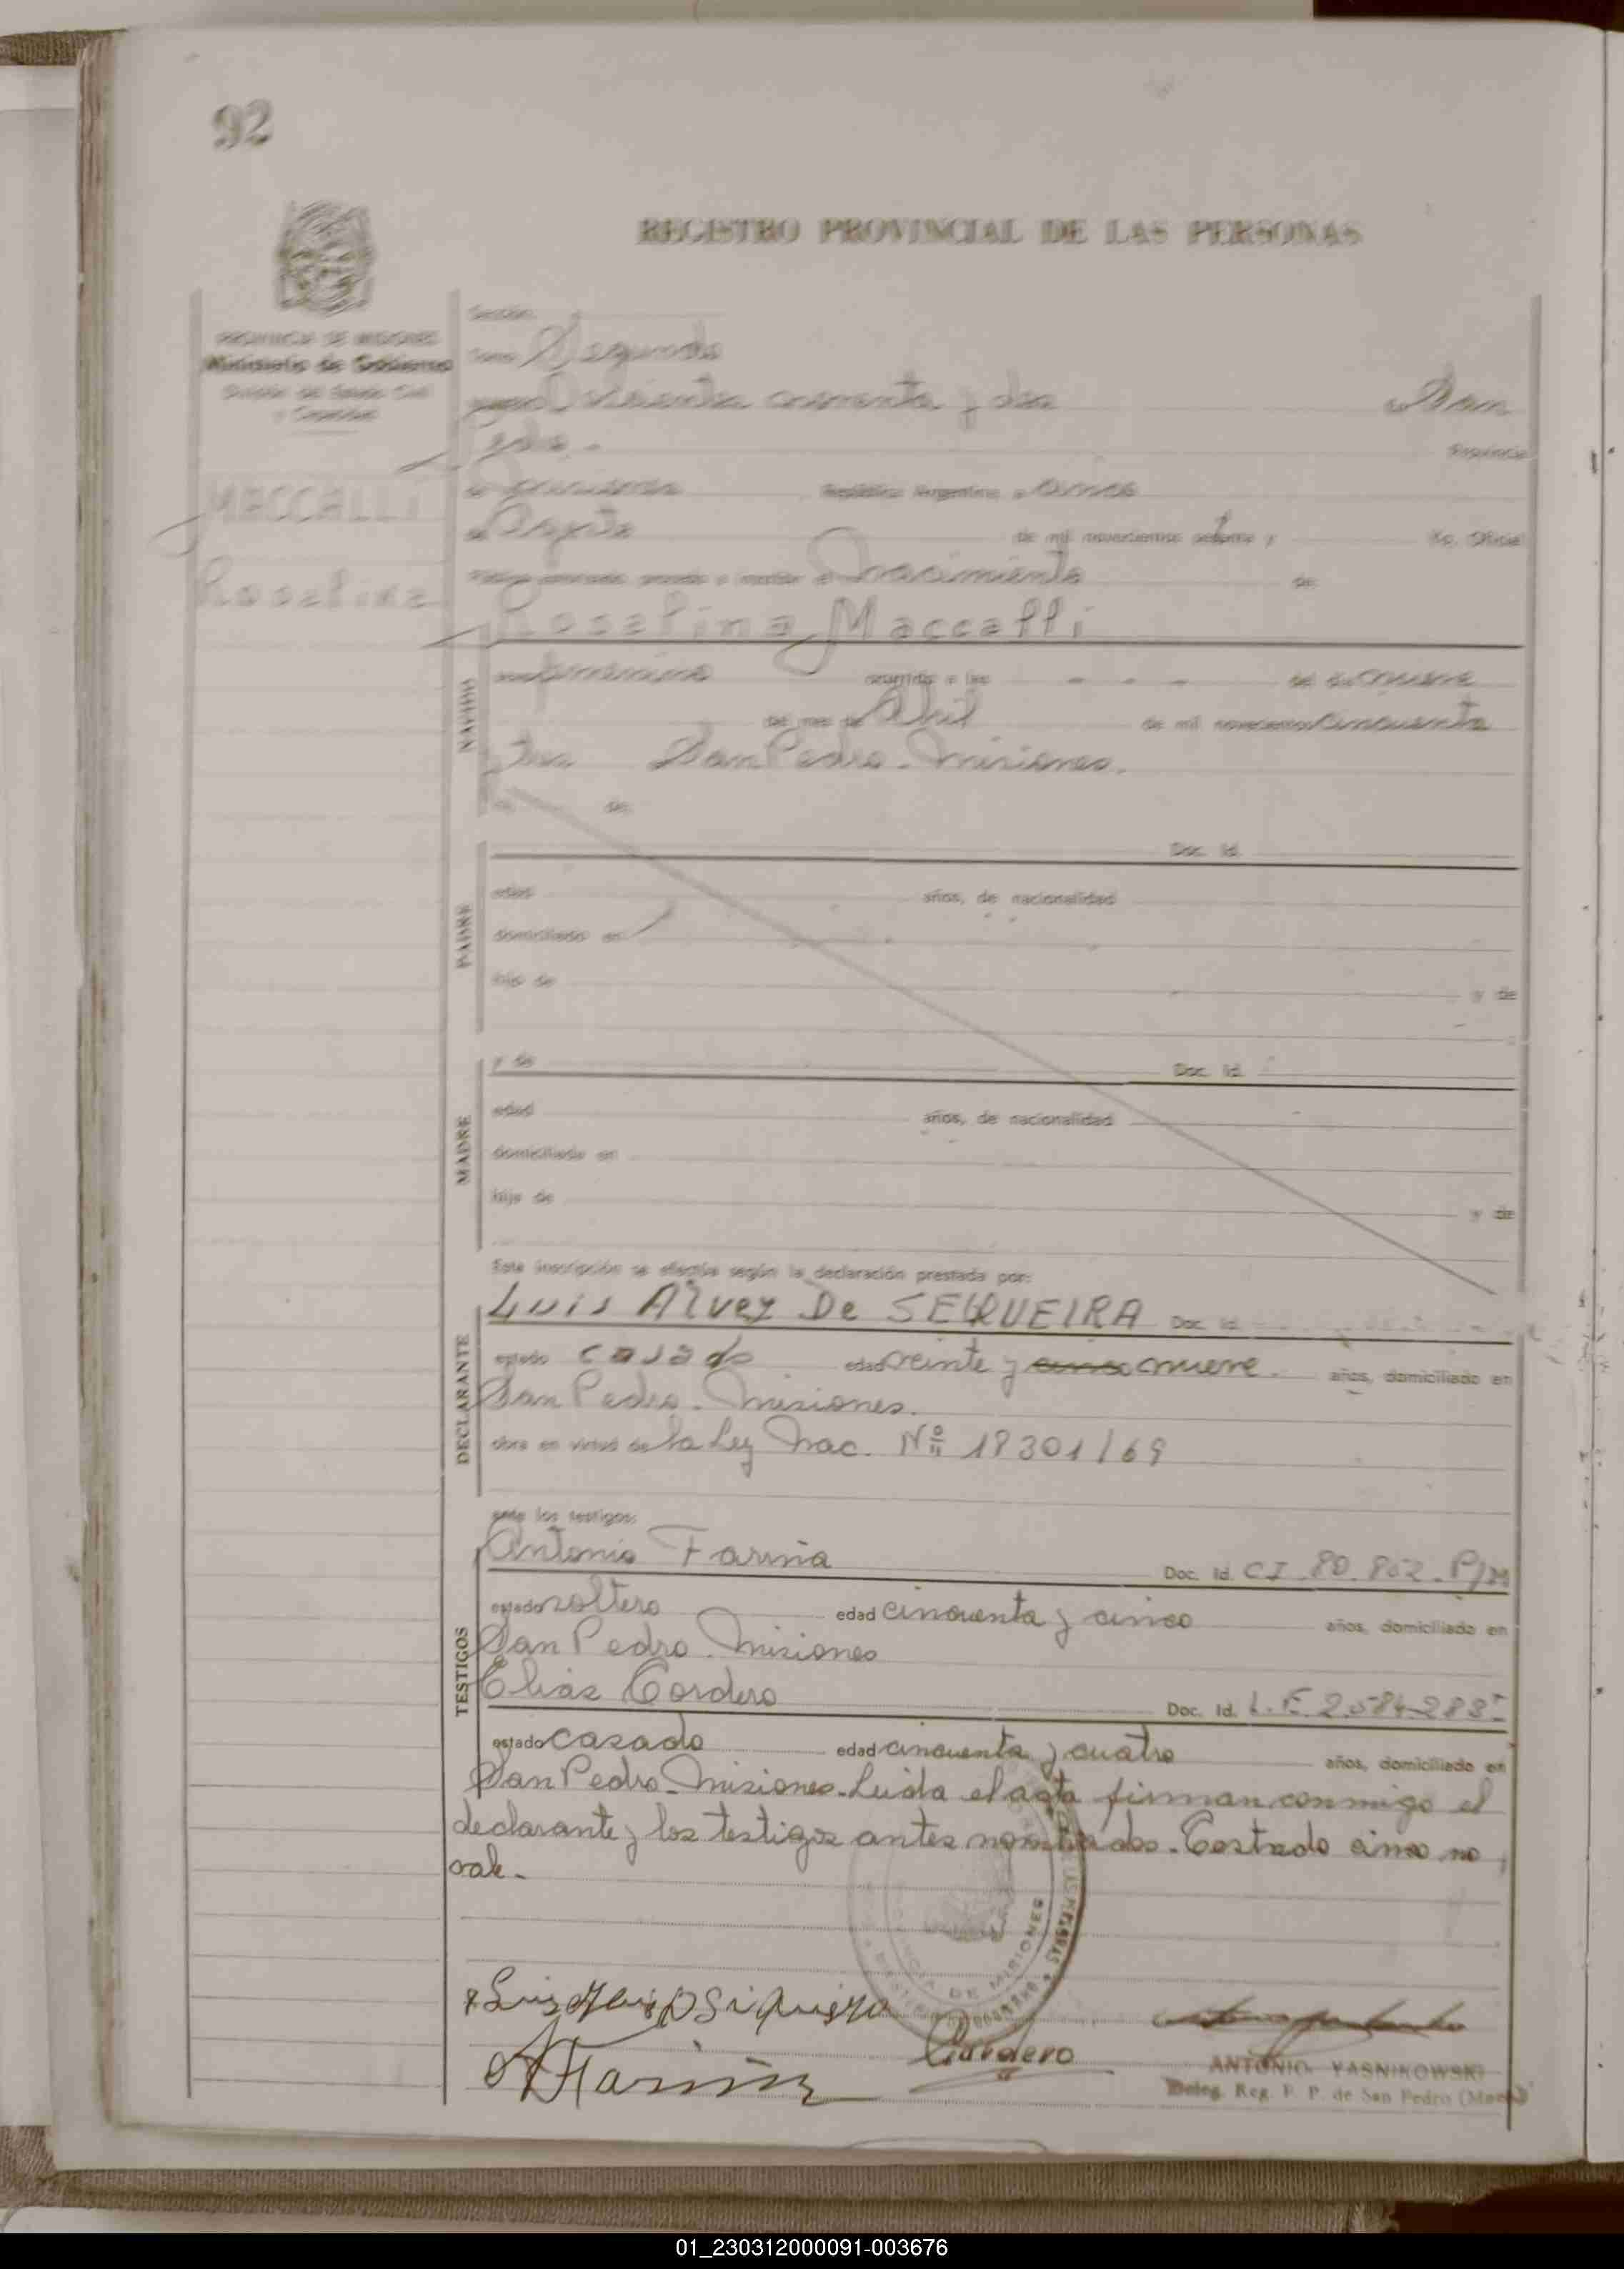 92
REGISTRO PROVINCIAL DE LAS PERSONAS
PROVINCIA DE MISIONES
Ministerio de Gobierno
Sección
Tomo Segundo
noventa y dos San
Pedro.-
Provincia
de Misiones República Argentina, a cinco
de Agosto de mil novecientos setenta y Yo, Oficial
MACCALLI
Rosalina
Público autorizado procedo a inscribir el Nacimiento de
Rosalina Maccalli
NACIDO
sexo femenino ocurrido a las - - - del día nueve
del mes de Abril de mil novecientos cincuenta
San Pedro - Misiones.
de
PADRE
Doc. Id.
edad años, de nacionalidad
domiciliado en
hijo de y de
MADRE
y de Doc. Id.
edad años, de nacionalidad
domiciliada en
hija de y de
Esta inscripción se efectúa según la declaración prestada por:
DECLARANTE
Luis Alvez De SEQUEIRA Doc. Id.
estado casado edad veinte y cinco nueve. años, domiciliado en
San Pedro - Misiones.
obra en virtud de la Ley Nac. Nº 18301/69
ante los testigos:
TESTIGOS
Antonio Fariña Doc. Id. CI 80.862 - P/M
estado soltero edad cincuenta y cinco años, domiciliado en
San Pedro - Misiones
Elias Cordero Doc. Id. L.E. 2.584.283
estado casado edad cincuenta y cuatro años, domiciliado en
San Pedro - Misiones - Leida el acta firman conmigo el
declarante y los testigos antes nombrados - Testado cinco no
vale -
PROVINCIA DE MISIONES
Cordero
AFariña
ANTONIO YASNIKOWSKI
Deleg. Reg. P. P. de San Pedro (Mnes)
01_230312000091-003676